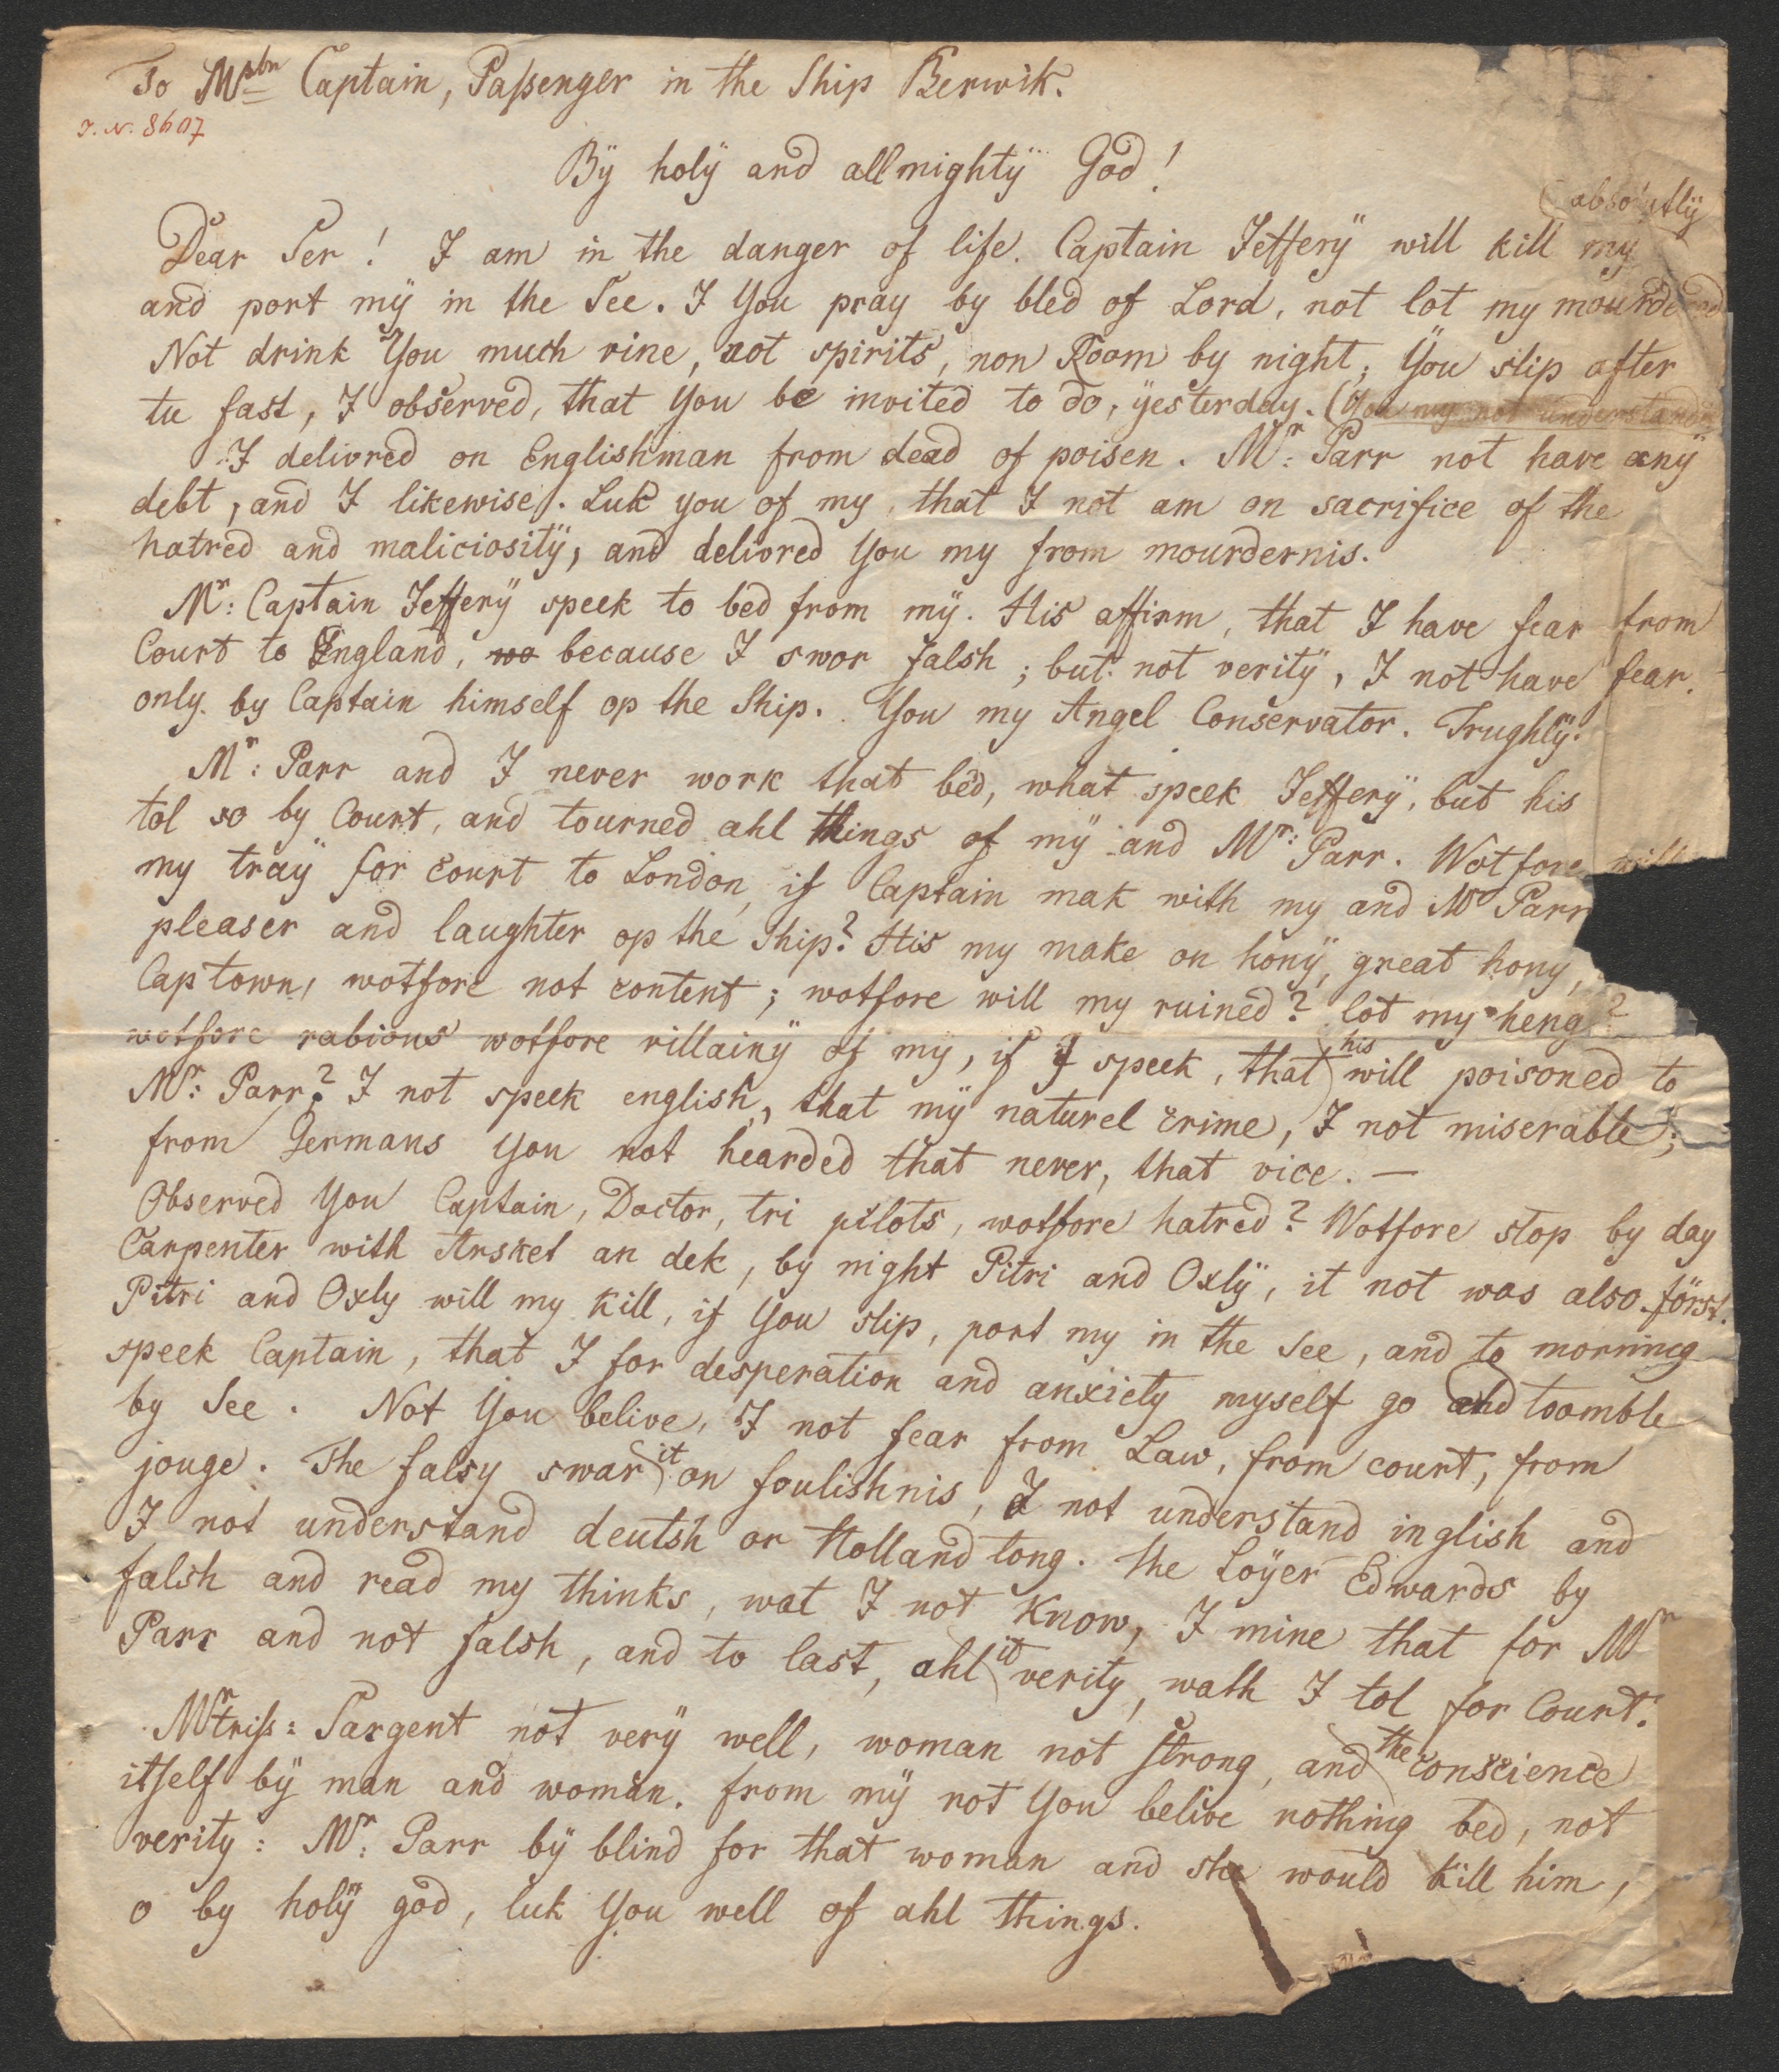 To Mstr Captain, Paſsenger in the Ship Berwik.
J. N. 8607
Bÿ holÿ and allmightÿ God!
absolutlÿ
Dear Ser! I am in the danger of life. Captain Jefferÿ will kill my
and port mÿ in the See. I You pray by bled of Lord, not lot my mourdered
Not drink You much vine, not spirits, non Room by night; Ÿou slip after
tu fast, I observed, that You be invited to do, ÿesterday. (You my not understand
I delivred on Englishman from dead of poisen. Mr: Parr not have anÿ
debt, and I likewise. Luk you of my, that I not am on sacrifice of the
hatred and maliciositÿ, and delivred You my from mourdernis.
Mr: Captain Jefferÿ speek to bed from mÿ. His affirm, that I have fear from
Court to England, wo because I swor falsh; but not veritÿ, I not have fear.
only by Captain himself op the Ship. You my Angel Conservator. Trughlÿ!
Mr: Parr and I never work that bed, what speek Jefferÿ, but his
tol so by Court, and tourned ahl things of mÿ and Mr: Parr. Wotfore will
my traÿ for court to London, if Captain mak with my and Mr Parr
pleaser and laughter op the Ship? His my make on honÿ, great hony,
Captown, wotfore not content; wotfore will my ruined? lot my heng?
wotfore rabious wotfore villainÿ of my, if I speek, that his will poisoned to
Mr: Parr? I not speek english, that mÿ naturel crime, I not miserable;
from Germans You not hearded that never, that vice. —
Observed You Captain, Doctor, tri pilots, wotfore hatred? Wotfore stop by day
Carpenter with Arsket an dek, by night Pitri and Oxlÿ, it not was also först.
Pitri and Oxly will my kill, if You slip, port my in the See, and to morning
speek Captain, that I for desperation and anxiety myself go and toomble
by See. Not You belive, I not fear from Law, from court, from
jouge. The falsy swar it on foulishnis, I not understand inglish and
I not understand deutsh or Holland tong. the Loÿer Edwards by
falsh and read my thinks, wat I not know, I mine that for Mr
Parr and not falsh, and to last, ahl it verity, wath I tol for Court.
Mrtriſs: Sargent not verÿ well, woman not strong, and the conscience
itself bÿ man and woman. from mÿ not You belive nothing bed, not
verity: Mr: Parr bÿ blind for that woman and she would kill him,
o by holÿ god, luk You well of ahl things.